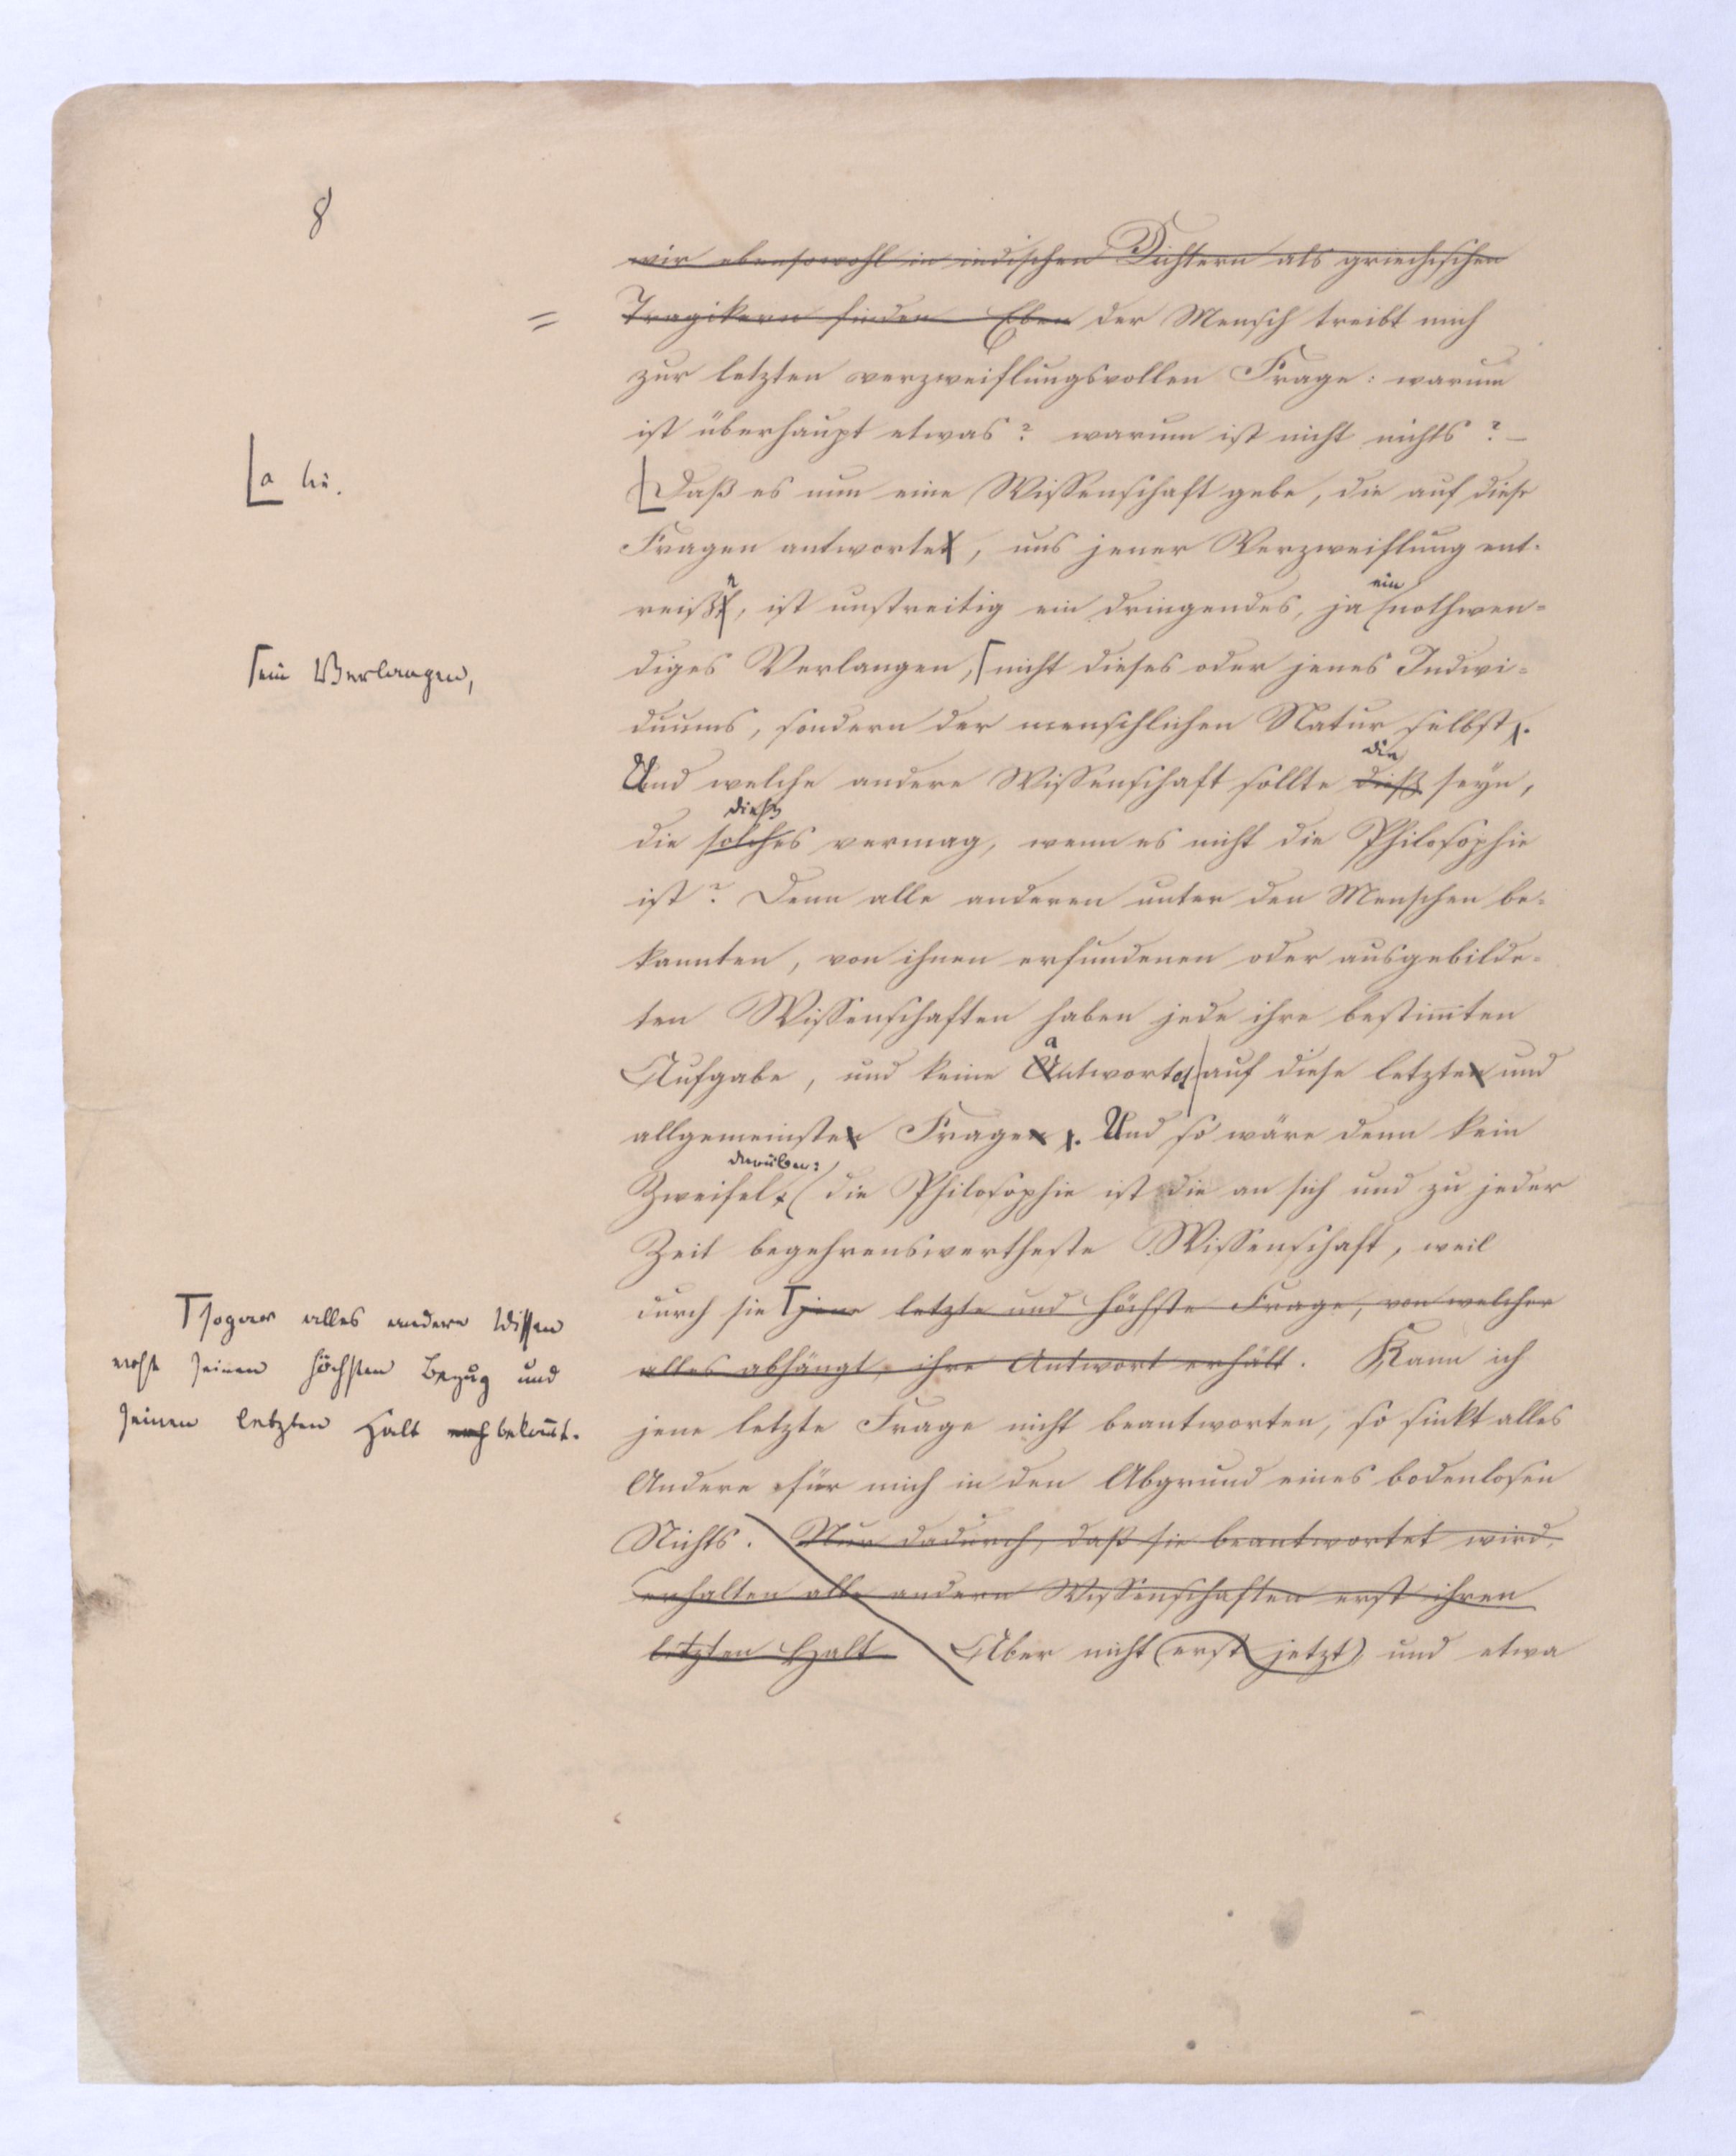 8
wir ebensowohl in indischen Dichtern als griechischen
= Tragikern finden Eben der Mensch treibt mich
zur letzten verzweiflungsvollen Frage: warum
ist überhaupt etwas? warum ist nicht nichts? –
a
Daß es nun eine Wissenschaft gebe, die auf diese
Fragen antwortet, uns jener Verzweiflung ent-
ein
reißt, ist unstreitig ein dringendes, ja nothwen-
ein Verlangen,
diges Verlangen, nicht dieses oder jenes Indivi-
duums, sondern der menschlichen Natur selbst.
die
Und welche andere Wissenschaft sollte dieß seyn,
dieß
die solches vermag, wenn es nicht die Philosophie
ist? Denn alle anderen unter den Menschen be-
kannten, von ihnen erfundenen oder ausgebilde-
ten Wissenschaften haben jede ihre bestim̅ten
a
Aufgabe, und keine Antwortet auf diese letzten und
allgemeinsten Fragen. Und so wäre denn kein
darüber:
Zweifel, die Philosophie ist die an sich und zu jeder
Zeit begehrenswertheste Wissenschaft, weil
durch sie jene letzte und höchste Frage, von welcher
alles abhängt, ihre Antwort erhält. Kann ich
sogar alles andere Wissen
erst seinen höchsten Bezug und
seinen letzten Halt bekom̅t.
jene letzte Frage nicht beantworten, so sinkt alles
Andere für mich in den Abgrund eines bodenlosen
Nichts. Nur dadurch, daß sie beantwortet wird,
erhalten alle andern Wissenschaften erst ihren
letzten Halt Aber nicht erst jetzt und etwa